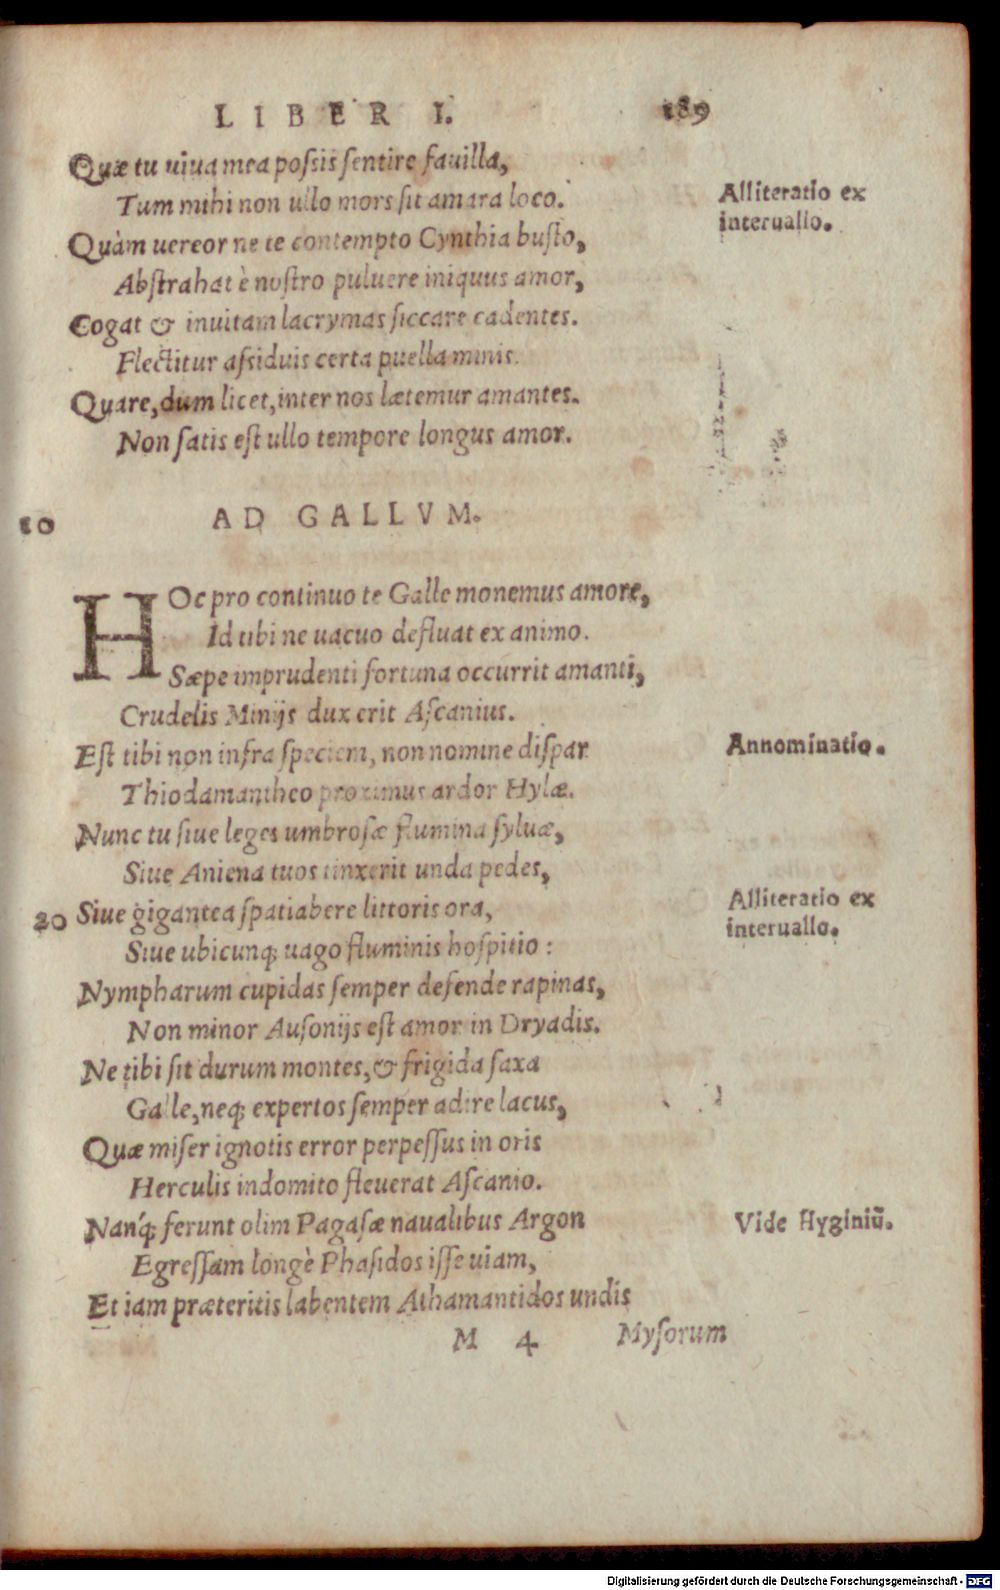 LIBER I. 189
Quæ tu uiua mea possis sentire fauilla,
Tum mihi non ullo mors sit amara loco.
Alliteratio ex
interuallo.
Quàm uereor ne te contempto Cynthia busto,
Abstrahat è nostro puluere iniquus amor,
Cogat & inuitam lacrymas siccare cadentes.
Flectitur assiduis certa puella minis.
Quare, dum licet, inter nos lætemur amantes.
Non satis est ullo tempore longus amor.
10 AD GALLVM.
HOc pro continuo te Galle monemus amore,
Id tibi ne uacuo defluat ex animo.
Sæpe imprudenti fortuna occurrit amanti,
Crudelis Minijs dux erit Ascanius.
Est tibi non infra speciem, non nomine dispar
Annominatio.
Thiodamantheo proximus ardor Hylæ.
Nunc tu siue leges umbrosæ flumina syluæ,
Siue Aniena tuos tinxerit unda pedes,
20 Siue gigantea spatiabere littoris ora,
Alliteratio ex
interuallo.
Siue ubicunq; uago fluminis hospitio:
Nympharum cupidas semper defende rapinas,
Non minor Ausonijs est amor in Dryadis.
Ne tibi sit durum montes, & frigida saxa
Galle, neq; expertos semper adire lacus,
Quæ miser ignotis error perpessus in oris
Herculis indomito fleuerat Ascanio.
Nanq́; ferunt olim Pagasæ naualibus Argon
Vide Hyginiũ.
Egressam longè Phasidos isse uiam,
Et iam præteritis labentem Athamantidos undis
M 4 Mysorum
Digitalisierung gefördert durch die Deutsche Forschungsgemeinschaft - DFG